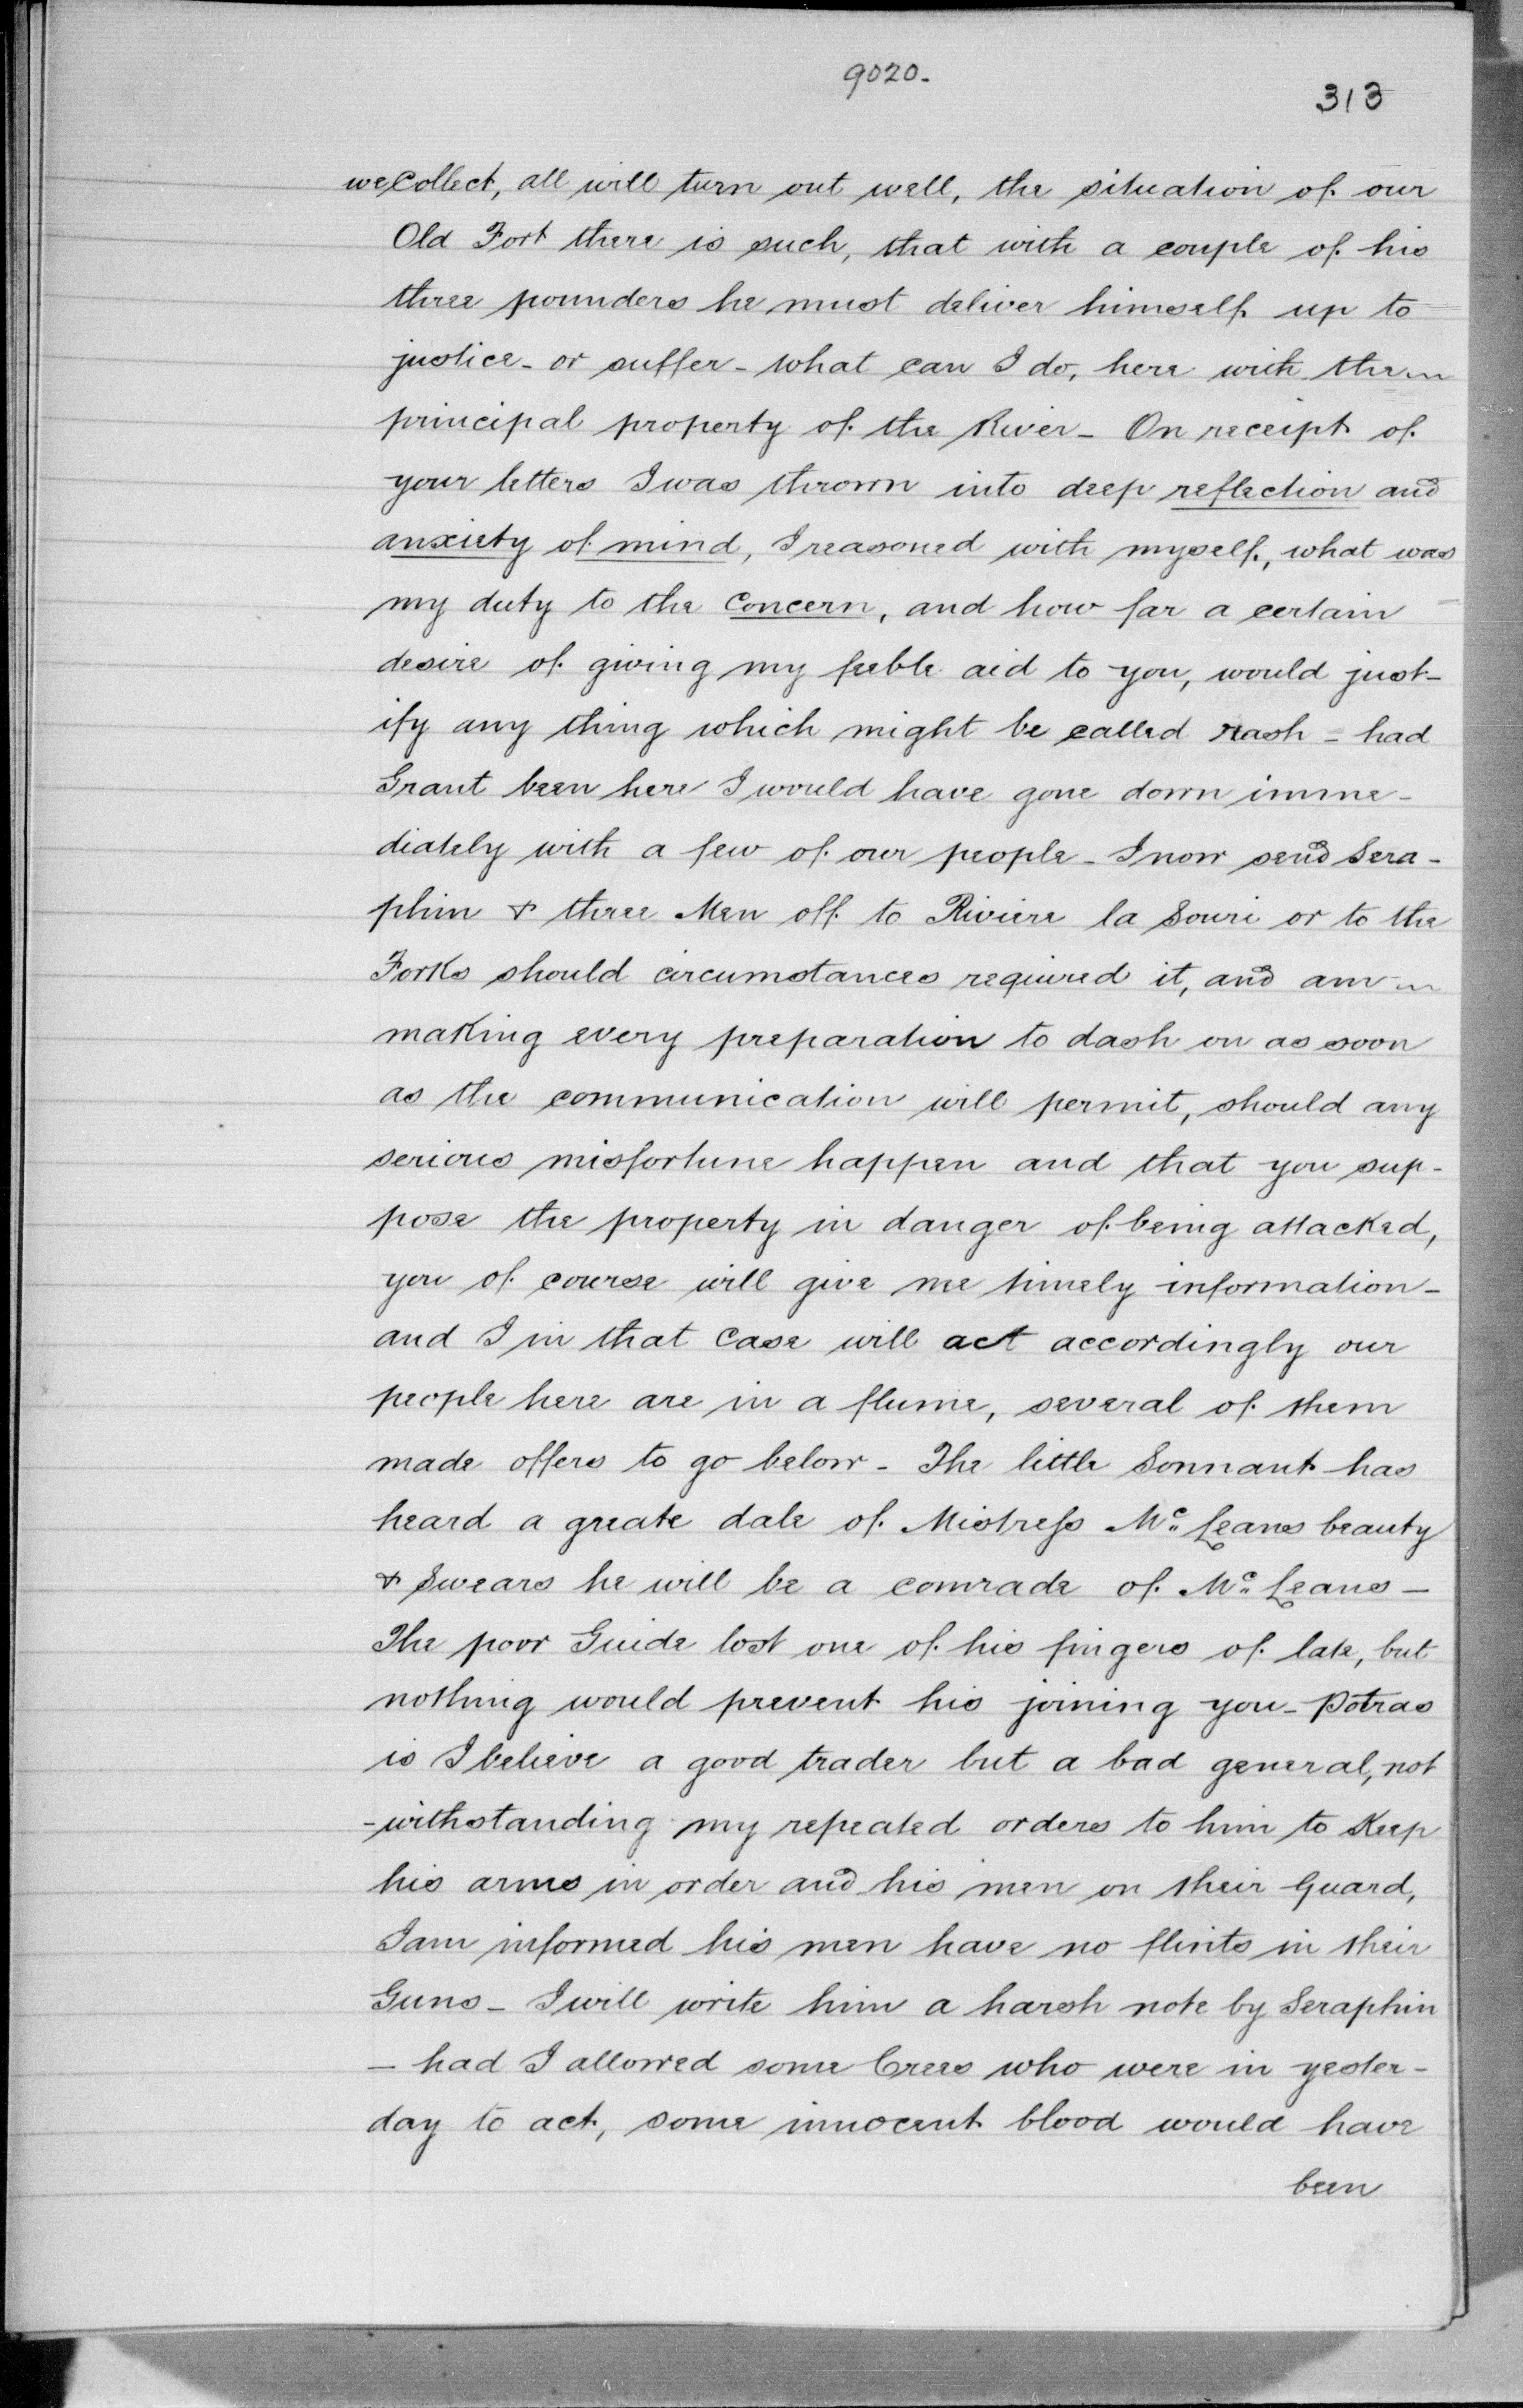 9020.
313
we Collect, all will turn out well, the situation of our
Old Fort there is such, that with a couple of his
three pounders he must deliver himself up to
justice - or suffer - what can I do, here with the
principal property of the River - On receipt of
your letters I was thrown into deep reflection and
anxiety of mind, I reasoned with myself, what was
my duty to the Concern, and how far a certain
desire of giving my feeble aid to you, would just-
ify any thing which might be called rash = had
Grant been here I would have gone down imme-
diately with a few of our people - I now send Sera-
phim & three Men off to Riviere la Souri or to the
Forks should circumstances required it, and am
making every preparation to dash on as soon
as the communication will permit, should any
serious misfortune happen and that you sup-
pose the property in danger of being attacked,
you of course will give me timely information -
and I in that Case will act accordingly our
people here are in a flume, several of them
made offers to go below - The little Sonnant has
heard a greate dale of Mistress Mc Leans beauty
& Swears he will be a comrade of Mc Leans -
The poor Guide lost one of his fingers of late, but
nothing would prevent his joining you - Potras
is I believe a good trader but a bad general, not
-withstanding my repeated orders to him to Keep
his arms in order and his men on their Guard,
I am informed his men have no flints in their
Guns - I will write him a harsh note by Seraphin
- had I allowed some Crees who were in yester-
day to act, some innocent blood would have
been